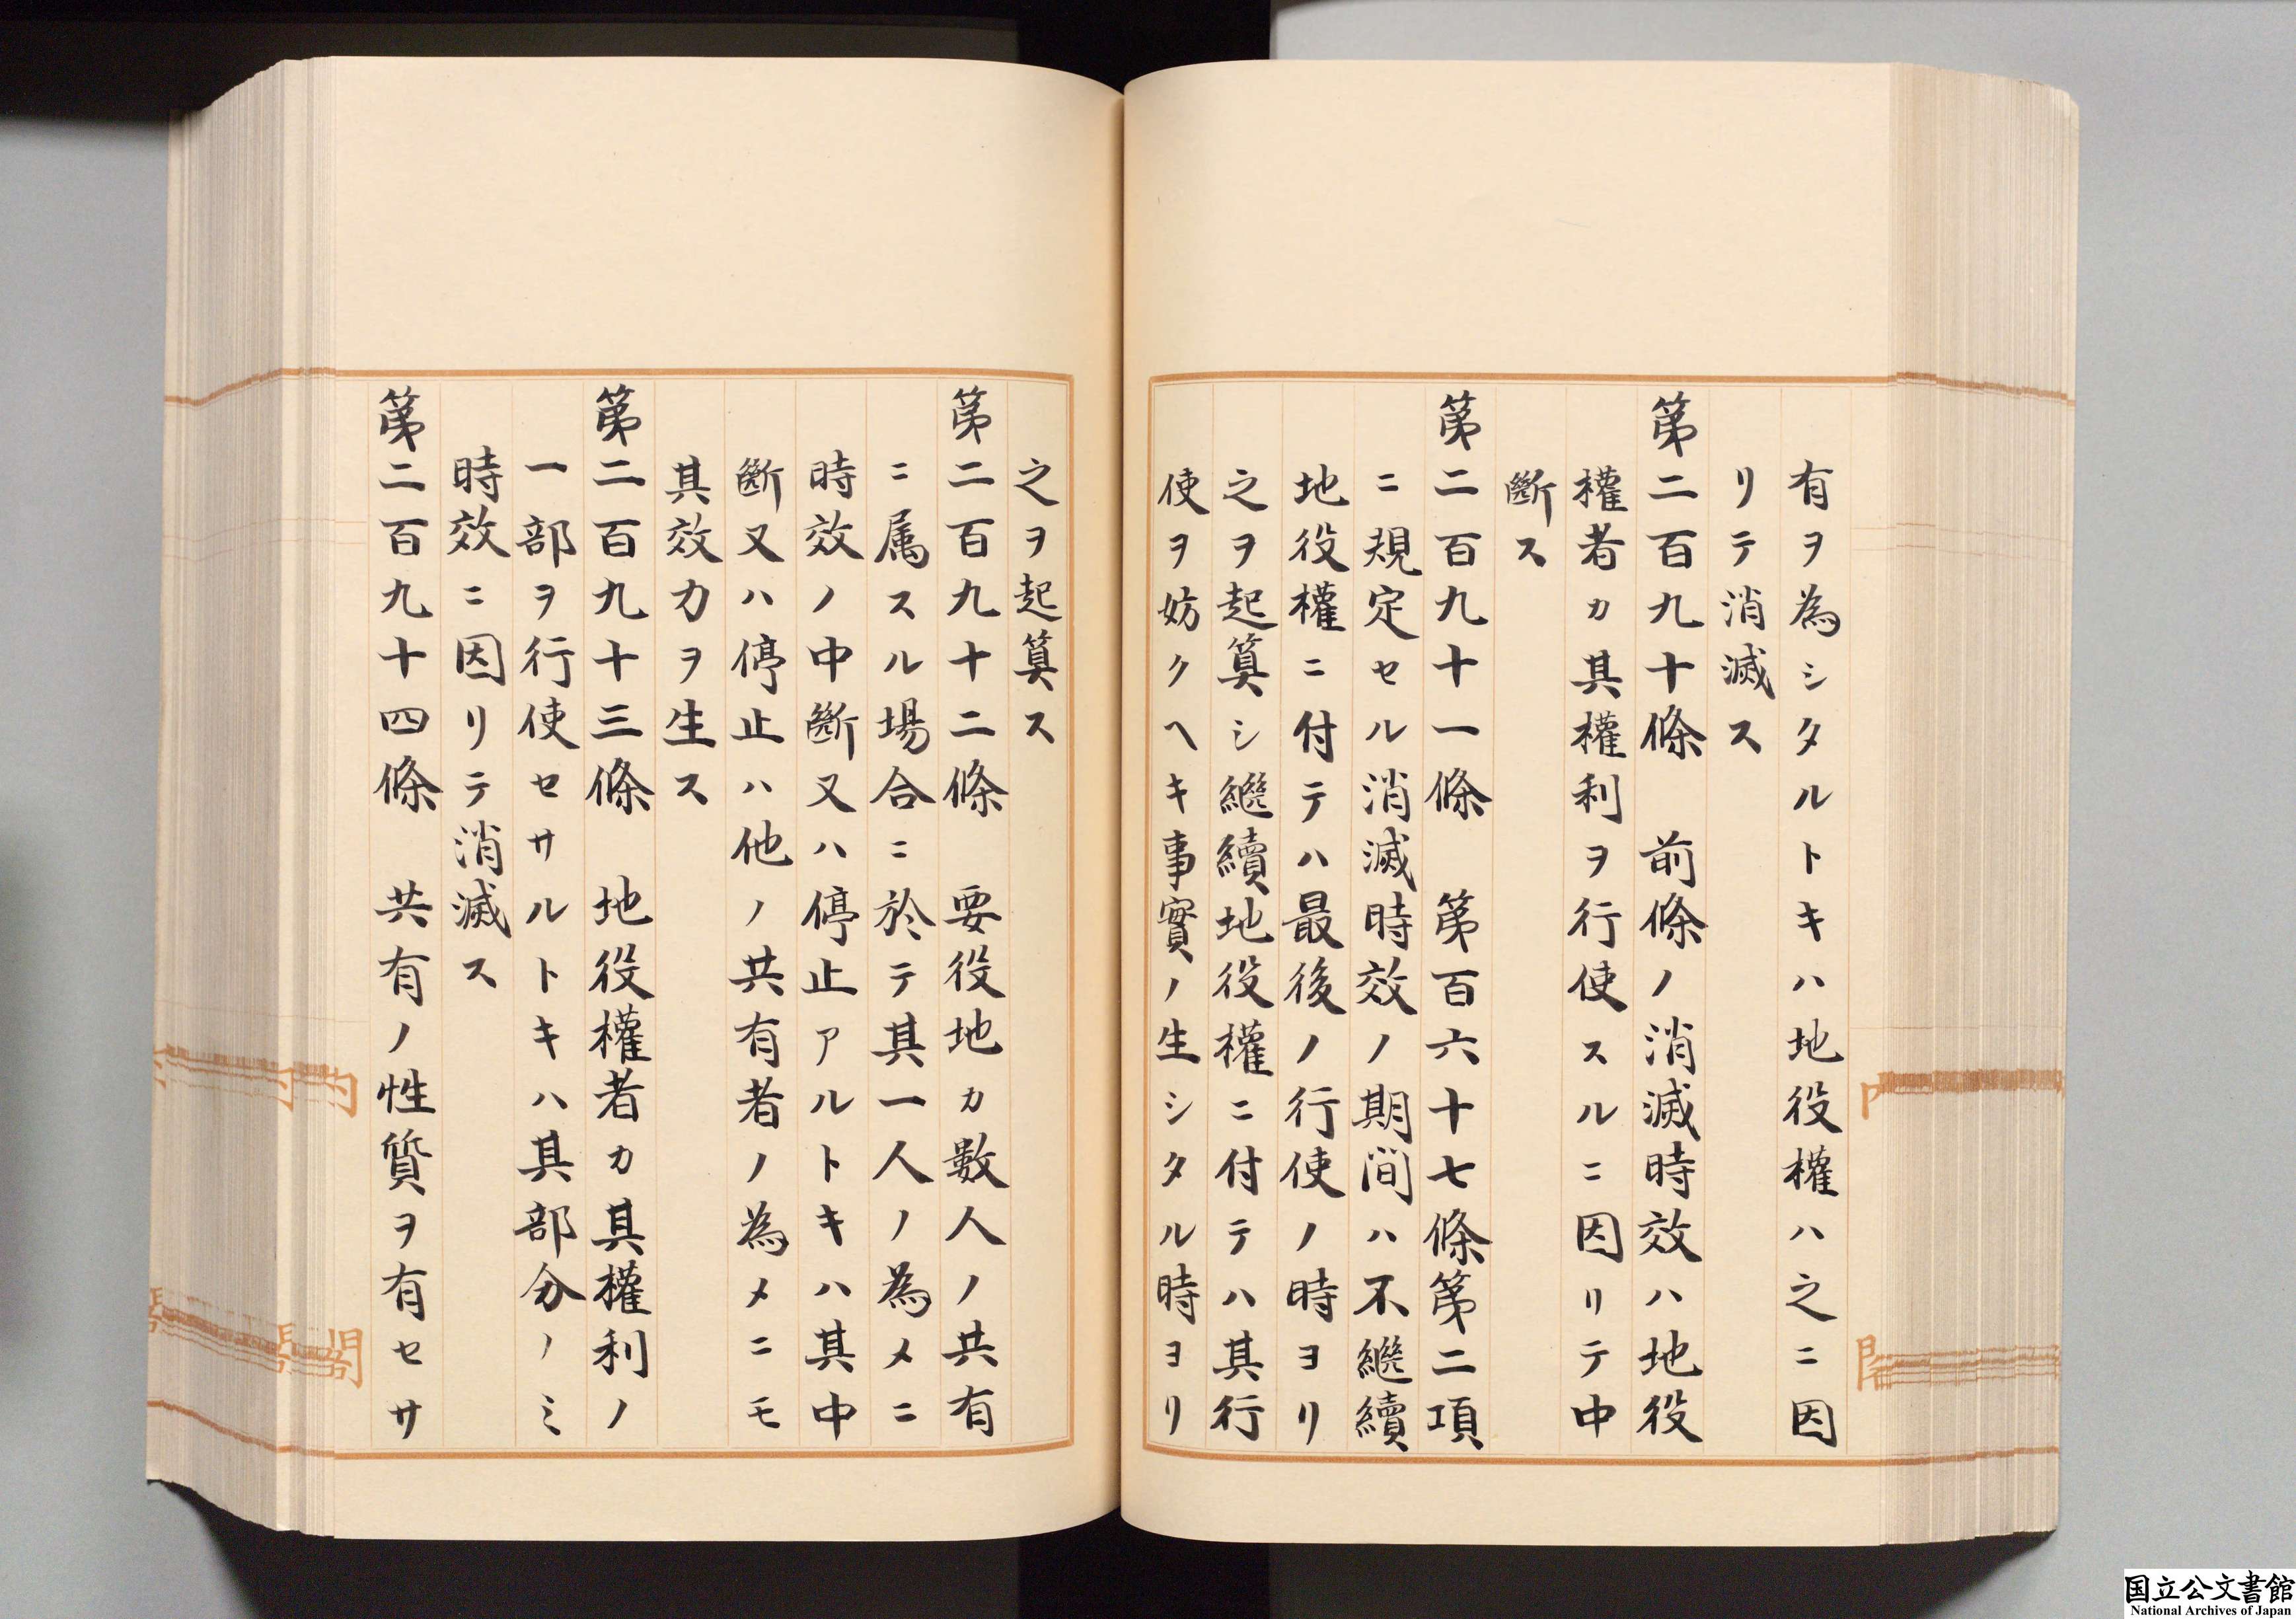 有ヲ為シタルトキハ地役權ハ之ニ因
リテ消滅ス
第二百九十條　前條ノ消滅時效ハ地役
權者カ其權利ヲ行使スルニ因リテ中
斷ス
第二百九十一條　第百六十七條第二項
ニ規定セル消滅時效ノ期間ハ不繼續
地役權ニ付テハ最後ノ行使ノ時ヨリ
之ヲ起算シ繼續地役權ニ付テハ其行
使ヲ妨クヘキ事實ノ生シタル時ヨリ
之ヲ起算ス
第二百九十二條　要役地カ數人ノ共有
ニ属スル場合ニ於テ其一人ノ為メニ
時效ノ中斷又ハ停止アルトキハ其中
斷又ハ停止ハ他ノ共有者ノ為メニモ
其效力ヲ生ス
第二百九十三條　地役權者カ其權利ノ
一部ヲ行使セサルトキハ其部分ノミ
時效ニ因リテ消滅ス
第二百九十四條　共有ノ性質ヲ有セサ
国立公文書館
National Archives of Japan